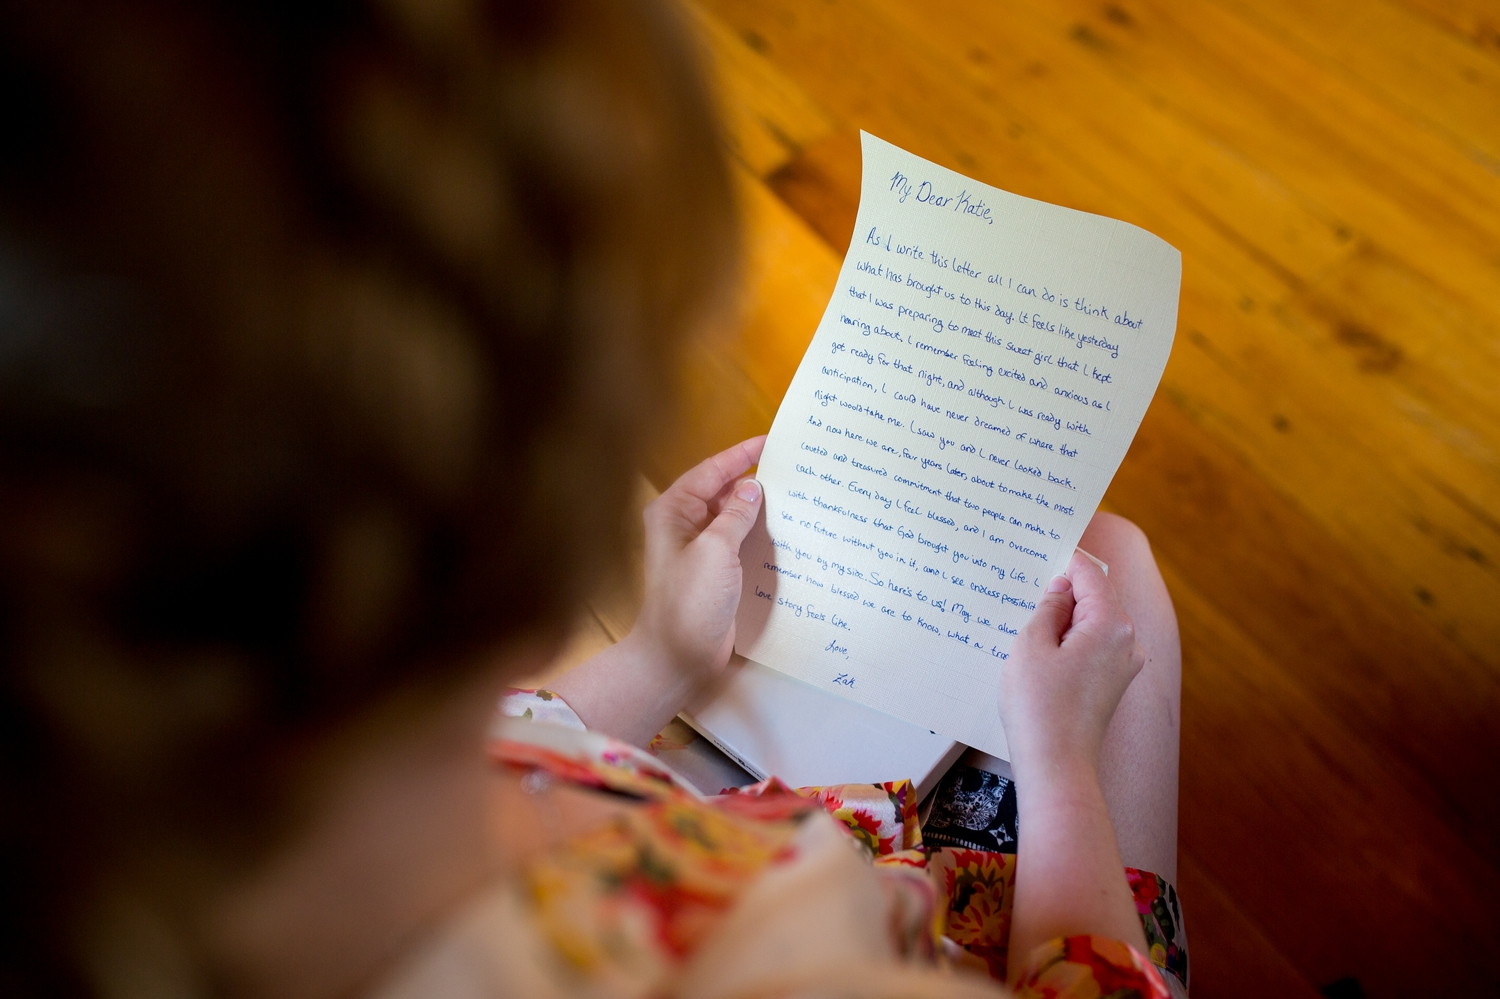 My Dear Katie,
As I write this letter all I can do is think about
what has brought us to this day. It feels like yesterday
that I was preparing to meet this sweet girl that I kept
hearing about. I remember feeling excited and anxious as I
got ready for that night, and although I was ready with
anticipation, I could have never dreamed of where that
night would take me. I saw you and I never looked back.
And now here we are, four years later, about to make the most
coveted and treasured commitment that two people can make to
each other. Every day I feel blessed, and I am overcome
with thankfulness that God brought you into my life. I
see no future without you in it, and I see endless possibilit
with you by my side. So here's to us! May we alwa
remember how blessed we are to know, what a tr
love story feels like.
Love,
Zak